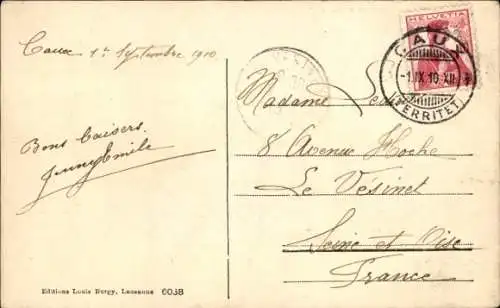 Caux 1er Septembre 1910
Bons baisers.
Jenny Emile
HELVETIA
CAUX
-1.IX.10.XII
(TERRITET)
Madame
8 Avenue Hoche
Le Vésinet
Seine et Oise
France
Editions Louis Burgy, Lausanne 6038